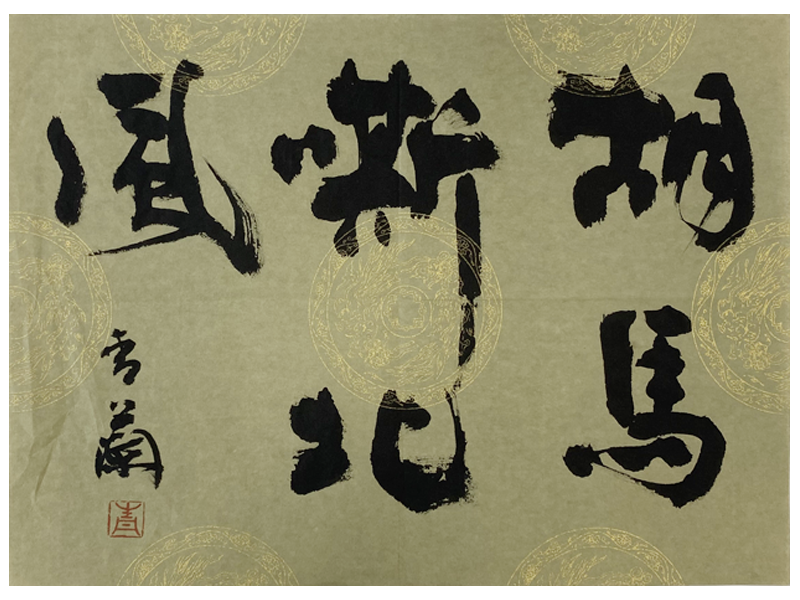 胡馬
嘶北
風
蘭